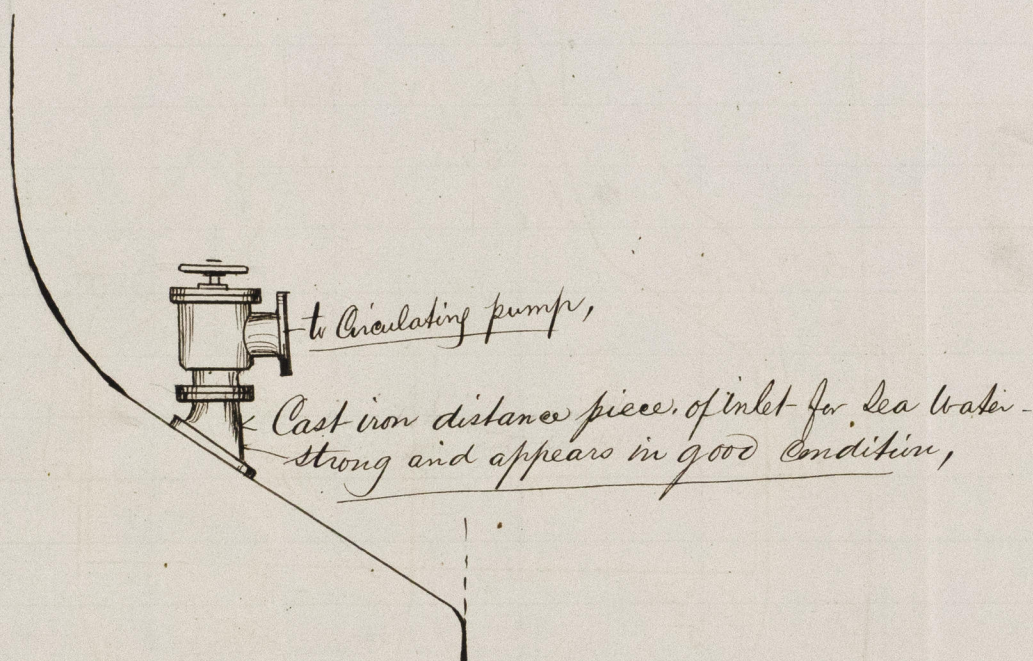 to Circulating pump,
Cast iron distance piece. of inlet for Sea Water -
strong and appears in good Condition,